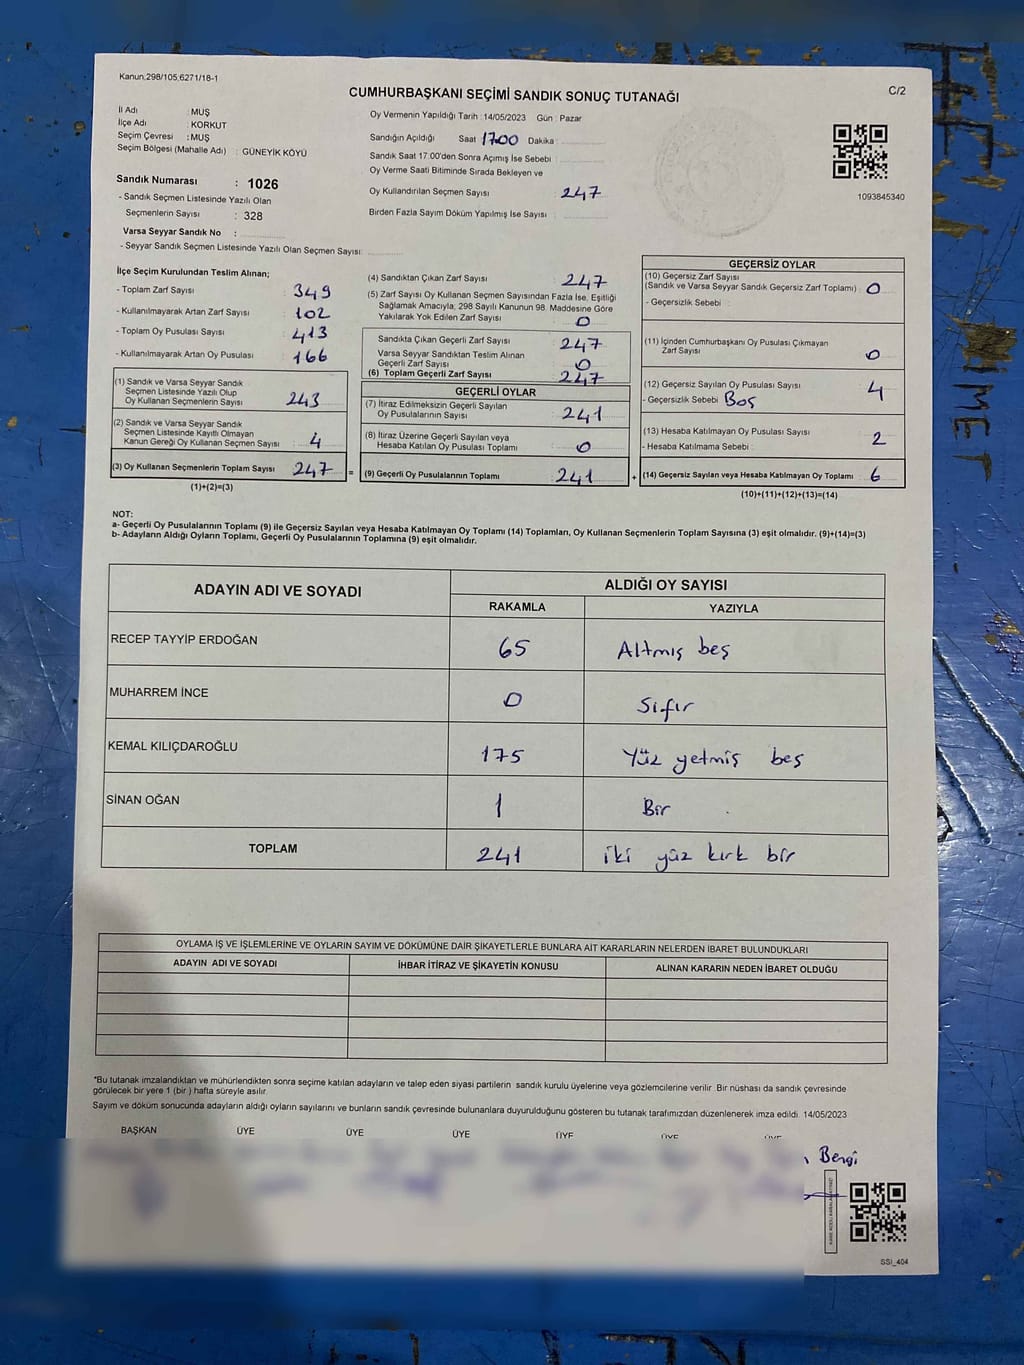 Kanun:298/105,6271/18-1
C/2
CUMHURBAŞKANI SEÇİMİ SANDIK SONUÇ TUTANAĞI
İl Adı : MUŞ
İlçe Adı : KORKUT
Seçim Çevresi : MUŞ
Seçim Bölgesi (Mahalle Adı) : GÜNEYİK KÖYÜ
Sandık Numarası : 1026
- Sandık Seçmen Listesinde Yazılı Olan
Seçmenlerin Sayısı : 328
Varsa Seyyar Sandık No :
- Seyyar Sandık Seçmen Listesinde Yazılı Olan Seçmen Sayısı:
Oy Vermenin Yapıldığı Tarih :14/05/2023 Gün : Pazar
Sandığın Açıldığı Saat 1700 Dakika :
Sandık Saat 17.00'den Sonra Açımış İse Sebebi :
Oy Verme Saati Bitiminde Sırada Bekleyen ve
Oy Kullandırılan Seçmen Sayısı : 247
Birden Fazla Sayım Döküm Yapılmış İse Sayısı :
1093845340
İlçe Seçim Kurulundan Teslim Alınan;
- Toplam Zarf Sayısı : 349
- Kullanılmayarak Artan Zarf Sayısı : 102
- Toplam Oy Pusulası Sayısı : 413
- Kullanılmayarak Artan Oy Pusulası : 166
(1) Sandık ve Varsa Seyyar Sandık
Seçmen Listesinde Yazılı Olup
Oy Kullanan Seçmenlerin Sayısı : 243
(2) Sandık ve Varsa Seyyar Sandık
Seçmen Listesinde Kayıtlı Olmayan
Kanun Gereği Oy Kullanan Seçmen Sayısı : 4
(3) Oy Kullanan Seçmenlerin Toplam Sayısı : 247 =
(1)+(2)=(3)
(4) Sandıktan Çıkan Zarf Sayısı : 247
(5) Zarf Sayısı Oy Kullanan Seçmen Sayısından Fazla İse, Eşitliği
Sağlamak Amacıyla, 298 Sayılı Kanunun 98. Maddesine Göre
Yakılarak Yok Edilen Zarf Sayısı : 0
Sandıkta Çıkan Geçerli Zarf Sayısı : 247
Varsa Seyyar Sandıktan Teslim Alınan
Geçerli Zarf Sayısı : 0
(6) Toplam Geçerli Zarf Sayısı : 247
GEÇERLİ OYLAR
(7) İtiraz Edilmeksizin Geçerli Sayılan
Oy Pusulalarının Sayısı : 241
(8) İtiraz Üzerine Geçerli Sayılan veya
Hesaba Katılan Oy Pusulası Toplamı : 0
(9) Geçerli Oy Pusulalarının Toplamı : 241 +
GEÇERSİZ OYLAR
(10) Geçersiz Zarf Sayısı
(Sandık ve Varsa Seyyar Sandık Geçersiz Zarf Toplamı) : 0
- Geçersizlik Sebebi :
(11) İçinden Cumhurbaşkanı Oy Pusulası Çıkmayan
Zarf Sayısı : 0
(12) Geçersiz Sayılan Oy Pusulası Sayısı : 4
- Geçersizlik Sebebi : Boş
(13) Hesaba Katılmayan Oy Pusulası Sayısı : 2
- Hesaba Katılmama Sebebi :
(14) Geçersiz Sayılan veya Hesaba Katılmayan Oy Toplamı : 6
(10)+(11)+(12)+(13)=(14)
NOT:
a- Geçerli Oy Pusulalarının Toplamı (9) ile Geçersiz Sayılan veya Hesaba Katılmayan Oy Toplamı (14) Toplamları, Oy Kullanan Seçmenlerin Toplam Sayısına (3) eşit olmalıdır. (9)+(14)=(3)
b- Adayların Aldığı Oyların Toplamı, Geçerli Oy Pusulalarının Toplamına (9) eşit olmalıdır.
ADAYIN ADI VE SOYADI
ALDIĞI OY SAYISI
RAKAMLA YAZIYLA
RECEP TAYYİP ERDOĞAN 65 Altmış beş
MUHARREM İNCE 0 Sıfır
KEMAL KILIÇDAROĞLU 175 Yüz yetmiş beş
SİNAN OĞAN 1 Bir
TOPLAM 241 iki yüz kırk bir
OYLAMA İŞ VE İŞLEMLERİNE VE OYLARIN SAYIM VE DÖKÜMÜNE DAİR ŞİKAYETLERLE BUNLARA AİT KARARLARIN NELERDEN İBARET BULUNDUKLARI
ADAYIN ADI VE SOYADI İHBAR İTİRAZ VE ŞİKAYETİN KONUSU ALINAN KARARIN NEDEN İBARET OLDUĞU
*Bu tutanak imzalandıktan ve mühürlendikten sonra seçime katılan adayların ve talep eden siyasi partilerin sandık kurulu üyelerine veya gözlemcilerine verilir. Bir nüshası da sandık çevresinde
görülecek bir yere 1 (bir ) hafta süreyle asılır.
Sayım ve döküm sonucunda adayların aldığı oyların sayılarını ve bunların sandık çevresinde bulunanlara duyurulduğunu gösteren bu tutanak tarafımızdan düzenlenerek imza edildi. 14/05/2023
BAŞKAN ÜYE ÜYE ÜYE ÜYE ÜYE ÜYE
Bergi
SSI_404